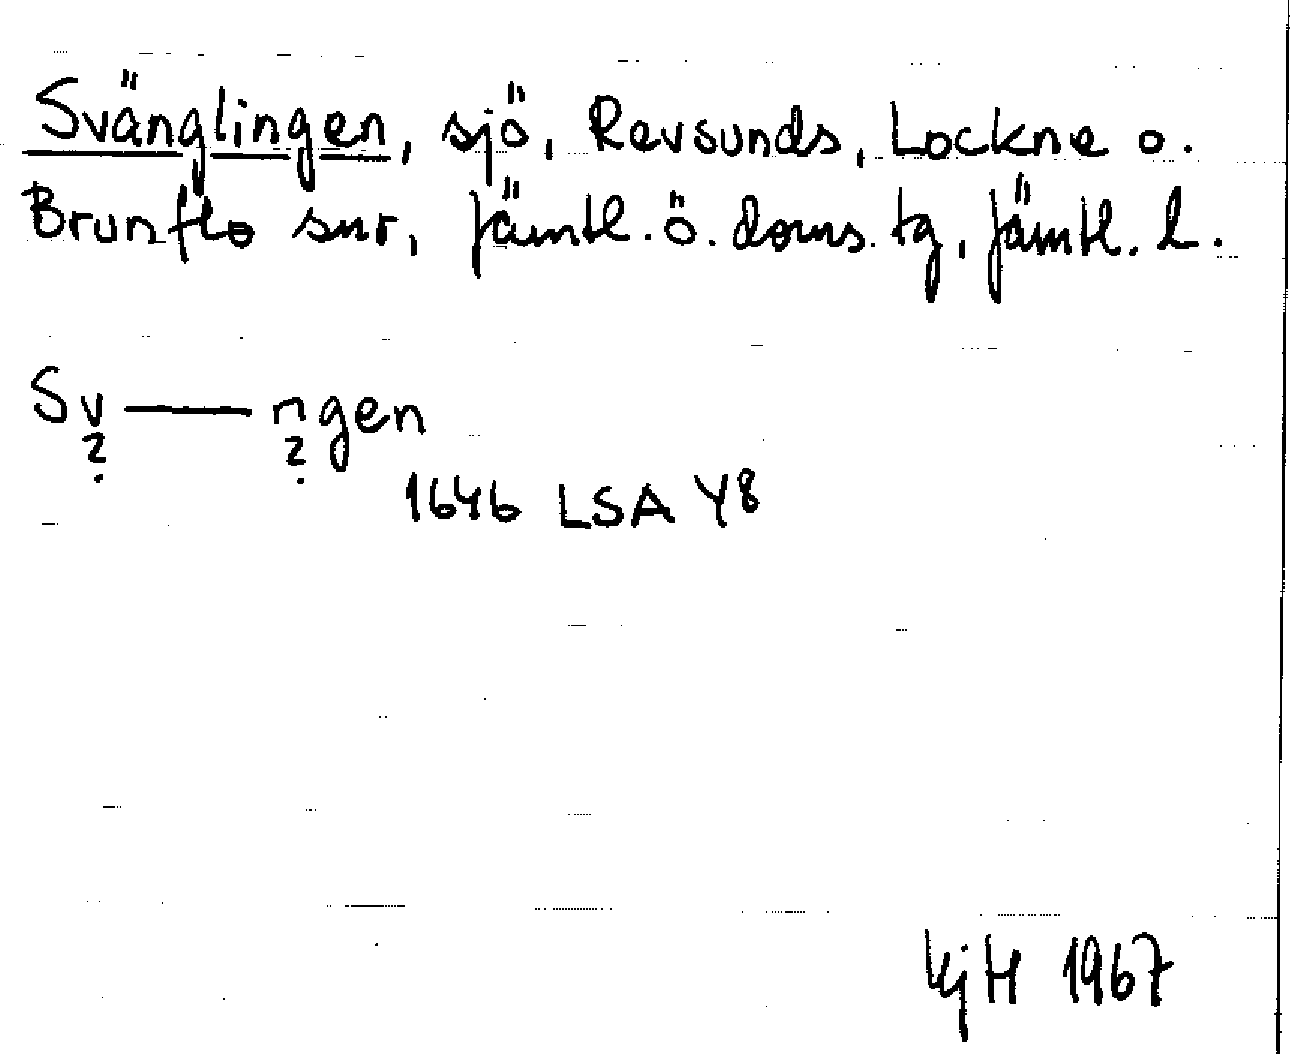 Svänglingen, sjö, Revsunds, Lockne o.
Brunflo snr, Jämtl. ö. doms. tg, Jämtl. l.
Sv — ngen
? ?
1646 LSA Y8
KjH 1967